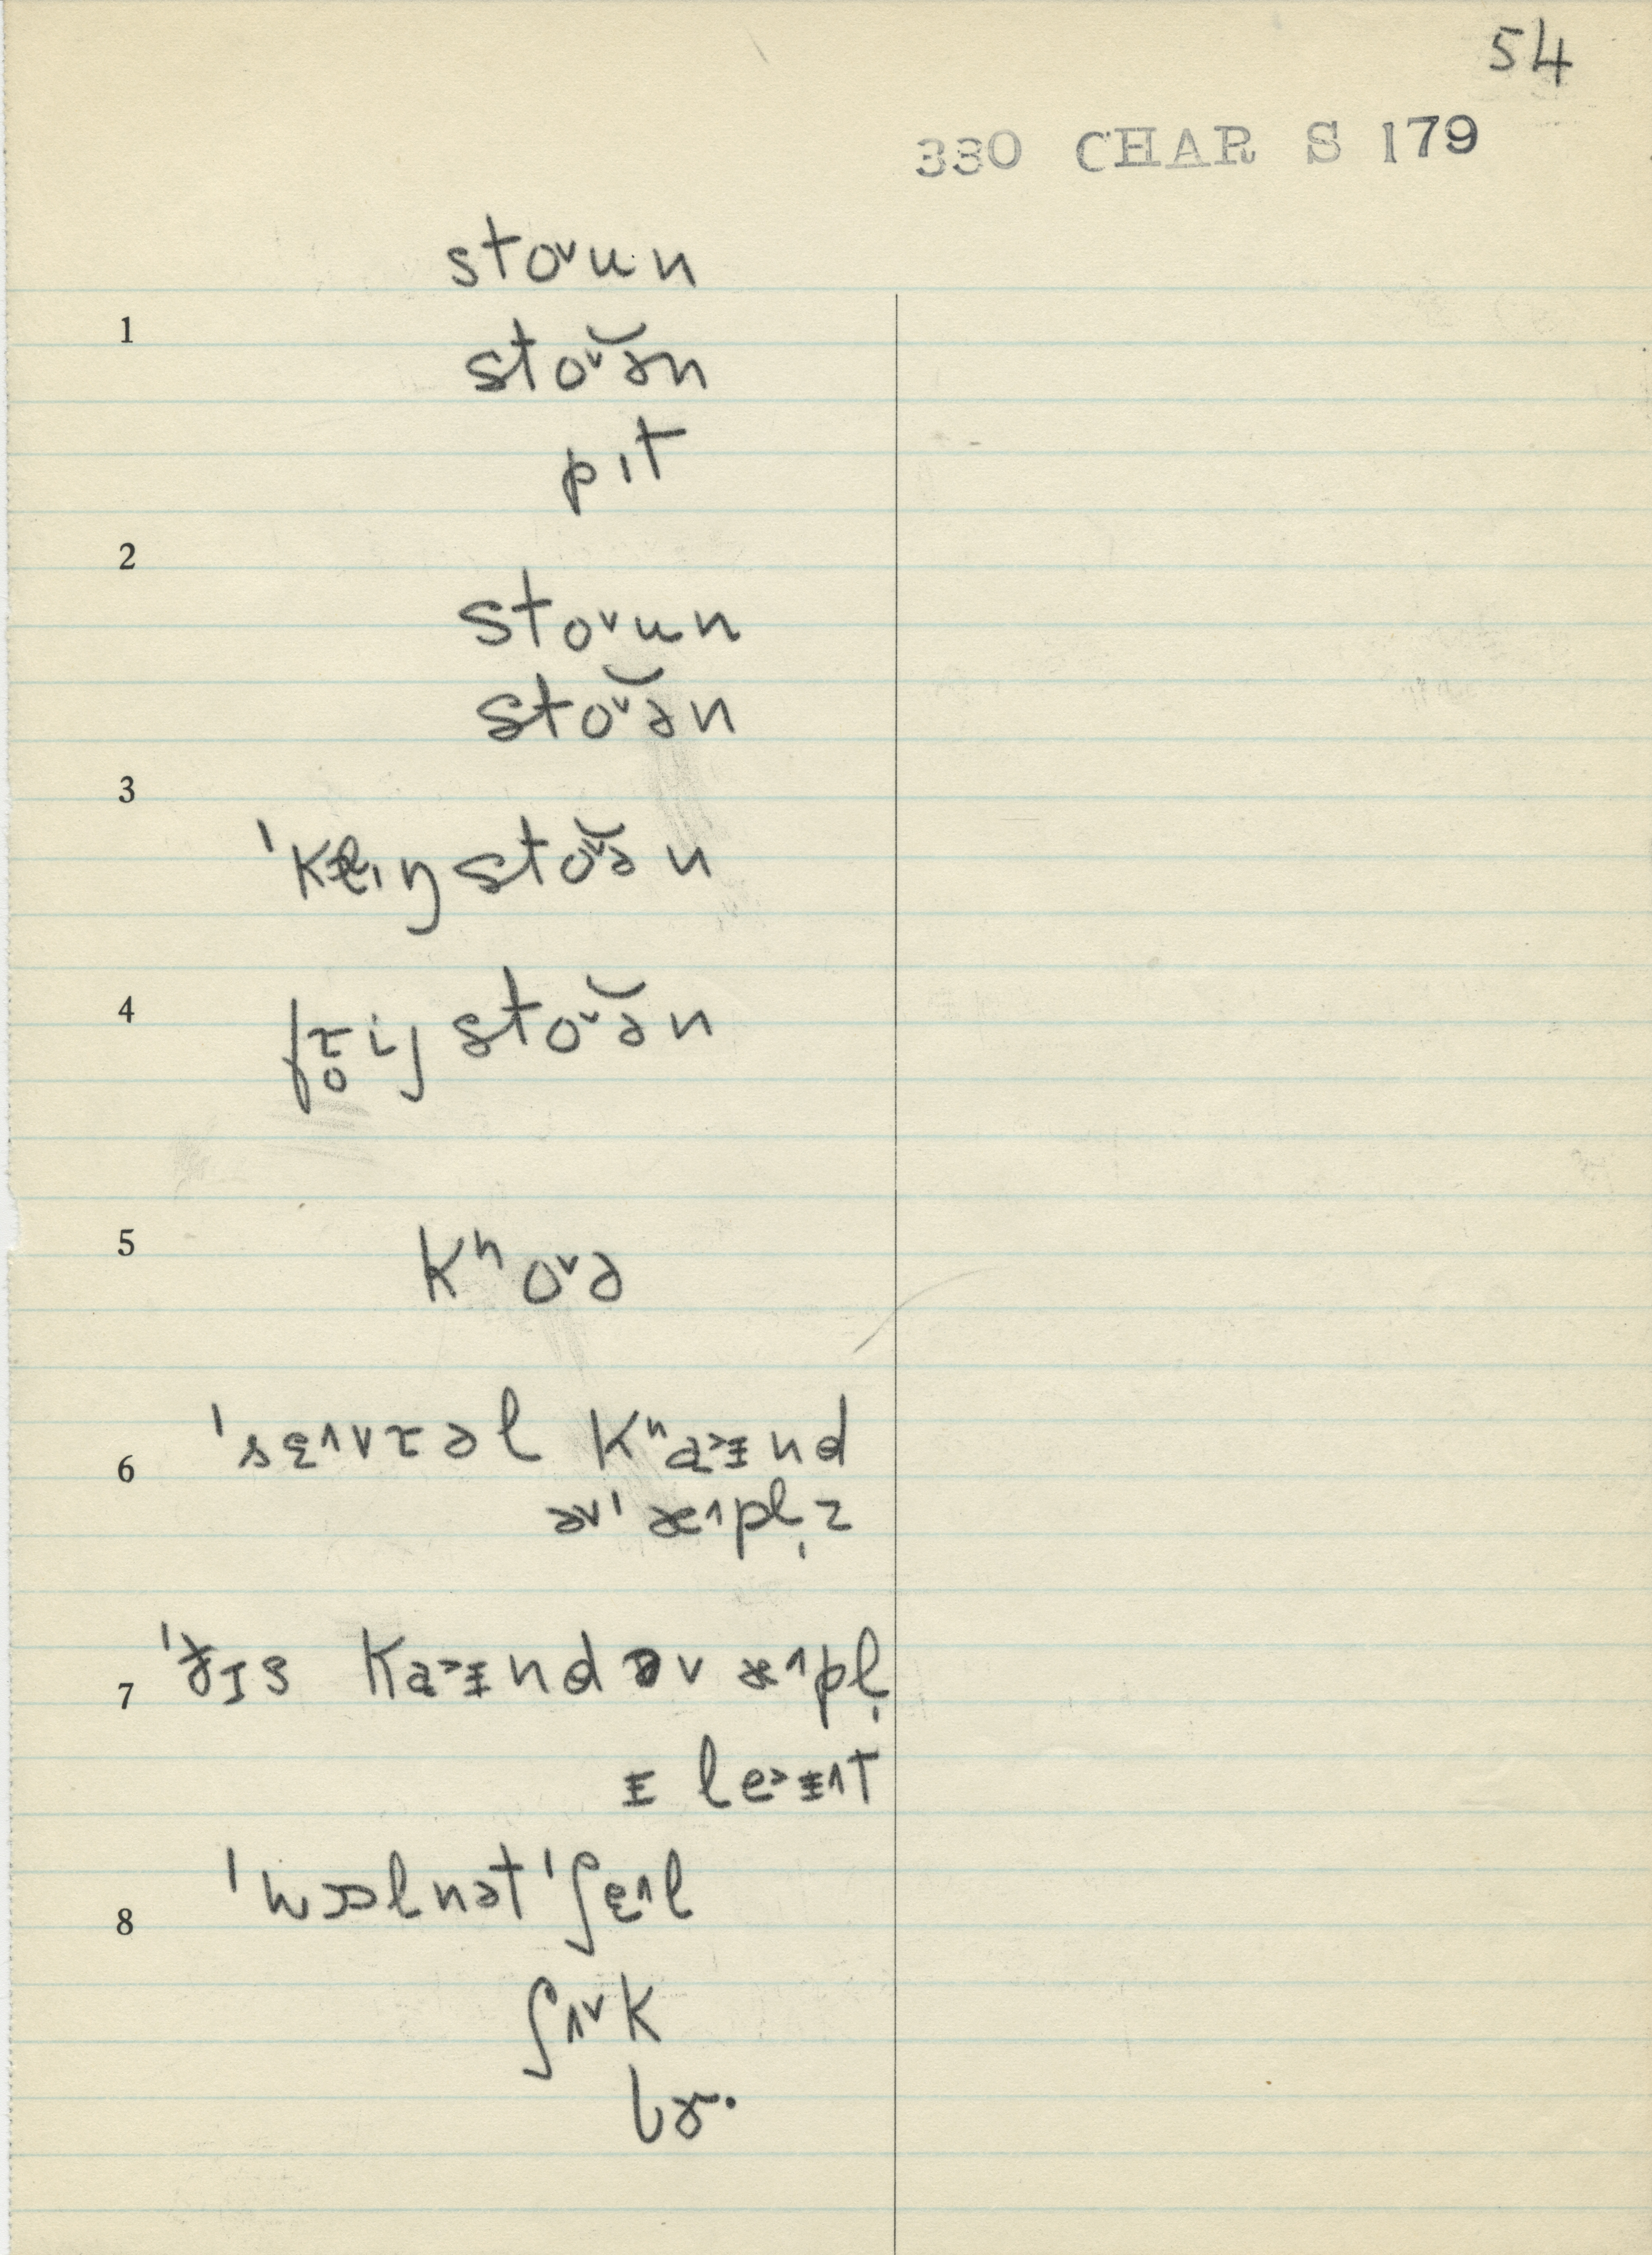 54
330 CHAR S 179
stoᵛun
1
stoᵛ͝ən
pıt
2
stoᵛun
stoᵛ͝ən
3
ˈklıŋ stoᵛ͝ən
4
frị̥ij stoᵛ͝ən
5
kʰoᵛə
ˈsɛ^vrəl kʰa˃ɪnd
6
əvˈæ^pl̩z
ˈðɪs ka˃ɪnd əv æ^pl̩
7
ɪ le˃ɪ^t
ˈwɔlnət ˈʃɛ^l
8
ʃʌᵛk
lɚ·